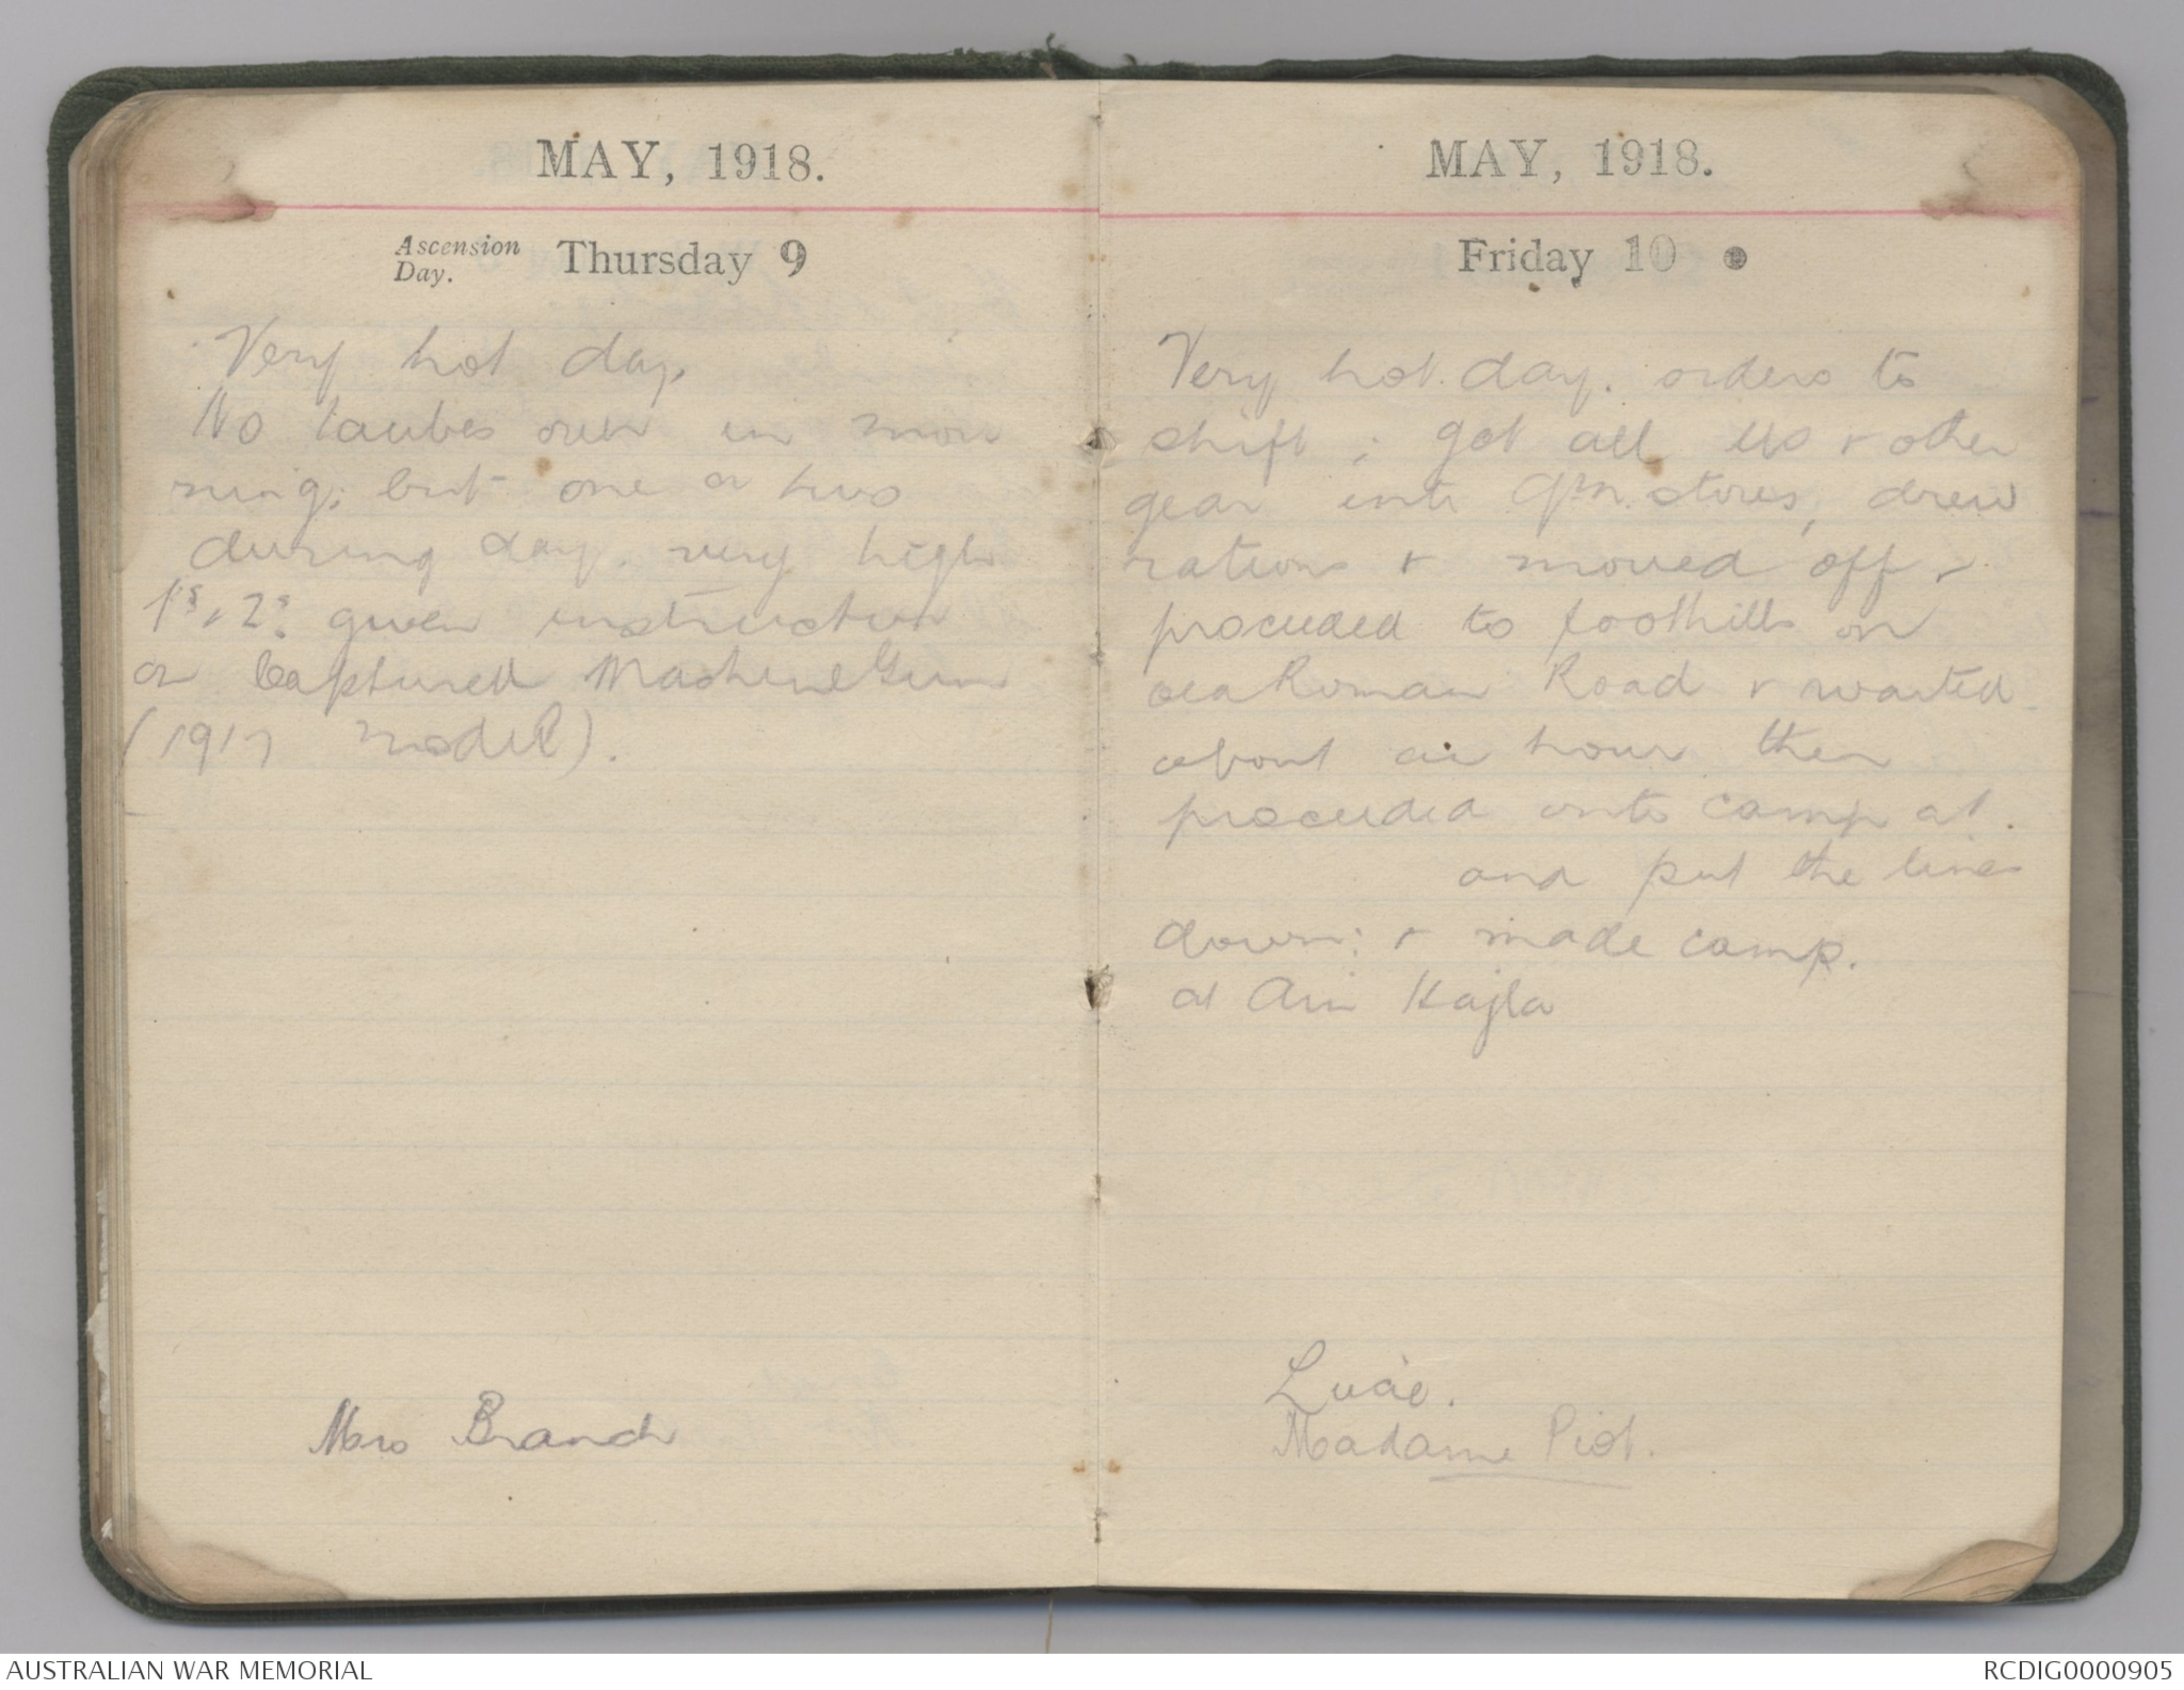 MAY, 1918.
Ascension
Day.
Thursday 9
Very hot day.
No taubes over in mor
ning; but one or two
during day. very high
1s, 2s given instruction
on Captured Machine Gun
(1917 model).
Mrs Branch
MAY, 1918.
Friday 10
Very hot day. orders to
shift; got all & other
gear into Qm. stores, drew
rations & moved off &
proceeded to foothills on
Roman Road & waited
about an hour then
proceeded onto camp at.
and put the lines
down: & made camp.
at Ain Kajla
Lucie.
Madame Piot.
AUSTRALIAN WAR MEMORIAL
RCDIG0000905